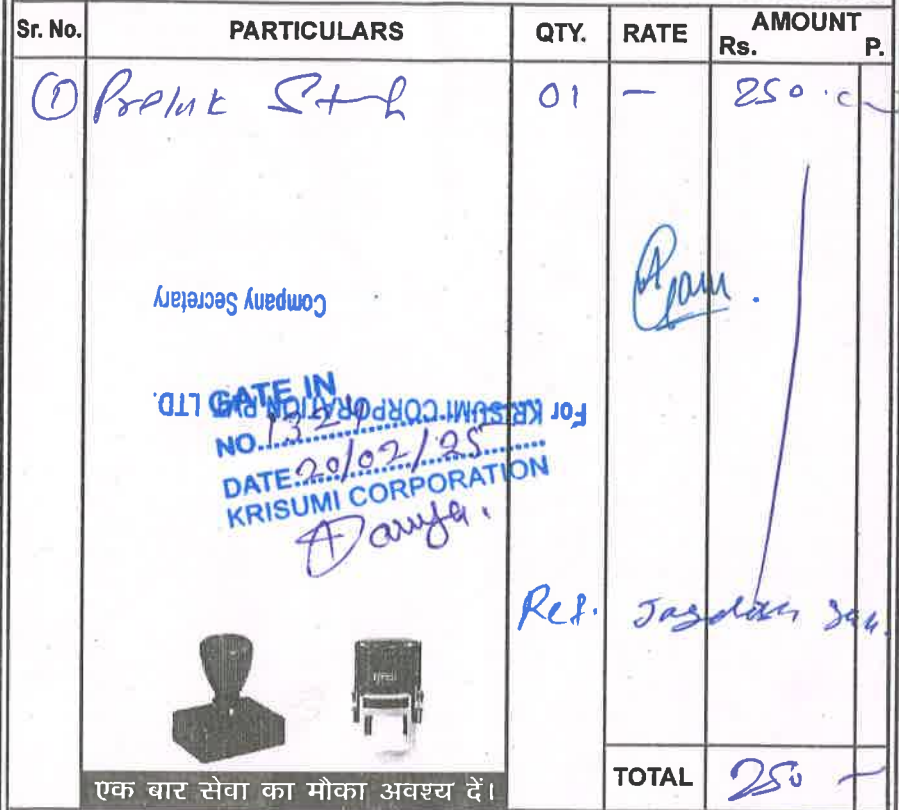 Sr. No. PARTICULARS QTY. RATE AMOUNT
Rs. P.
① 01 — 250
Company Secretary
For KRISUMI CORPORATION LTD.
GATE IN
NO. 1324
DATE 20/02/25
KRISUMI CORPORATION
Ref.
एक बार सेवा का मौका अवश्य दें।
TOTAL 250 —